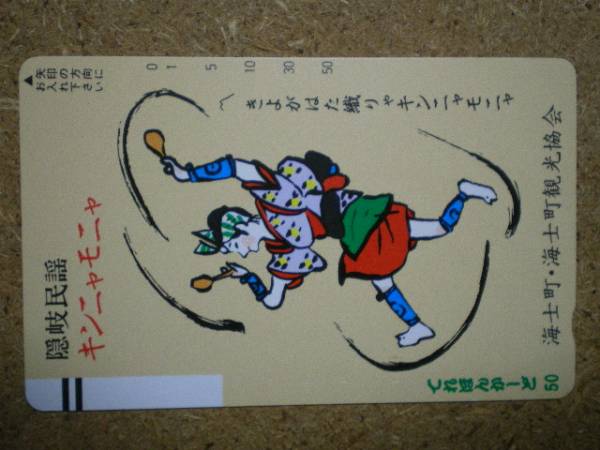 ▲矢印の方向に
お入れ下さい
0 1 5 10 30 50
〽きよがはた織りゃキンニャモニャ
隠岐民謡
キンニャモニャ
海士町・海士町観光協会
てれほんかーど
50